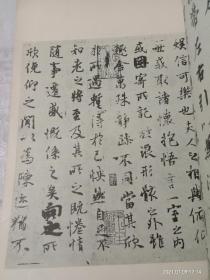 帶左右引以
娱信可樂也夫人之相與俯仰
一世或取諸懷抱悟言一室之内
或因寄所託放浪形骸之外雖
趣舍萬殊靜躁不同當其欣
於所遇暫得於己怏然自足不
知老之將至及其所之既惓情
隨事遷感慨係之矣向之所
欣俛仰之間以爲陳迹猶不